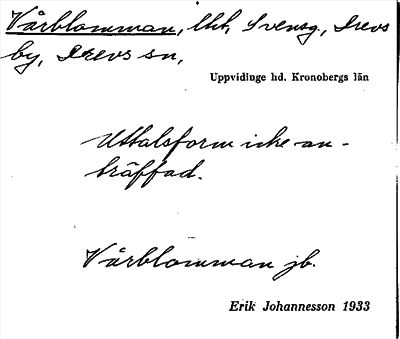 Vårblomman, lht, Svensg., Drevs
by, Drevs sn,
Uppvidinge hd. Kronobergs län
Uttalsform icke an-
träffad.
Vårblomman jb.
Erik Johannesson 1933